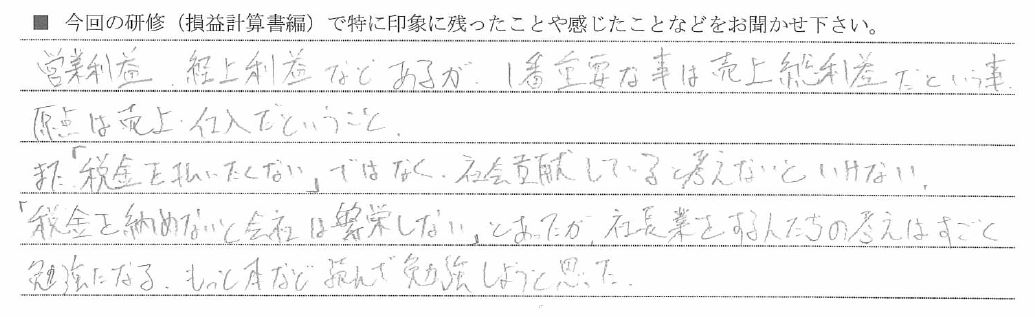 ■ 今回の研修（損益計算書編）で特に印象に残ったことや感じたことなどをお聞かせ下さい。
営業利益、経上利益などあるが、1番重要な事は売上総利益だという事、
原点は売上・仕入だということ、
また「税金を払いたくない」ではなく、社会貢献していると考えないといけない、
「税金を納めないと会社は繁栄しない」とあったが、社長業をする人たちの考えはすごく
勉強になる。もっと本など読んで勉強しようと思った。